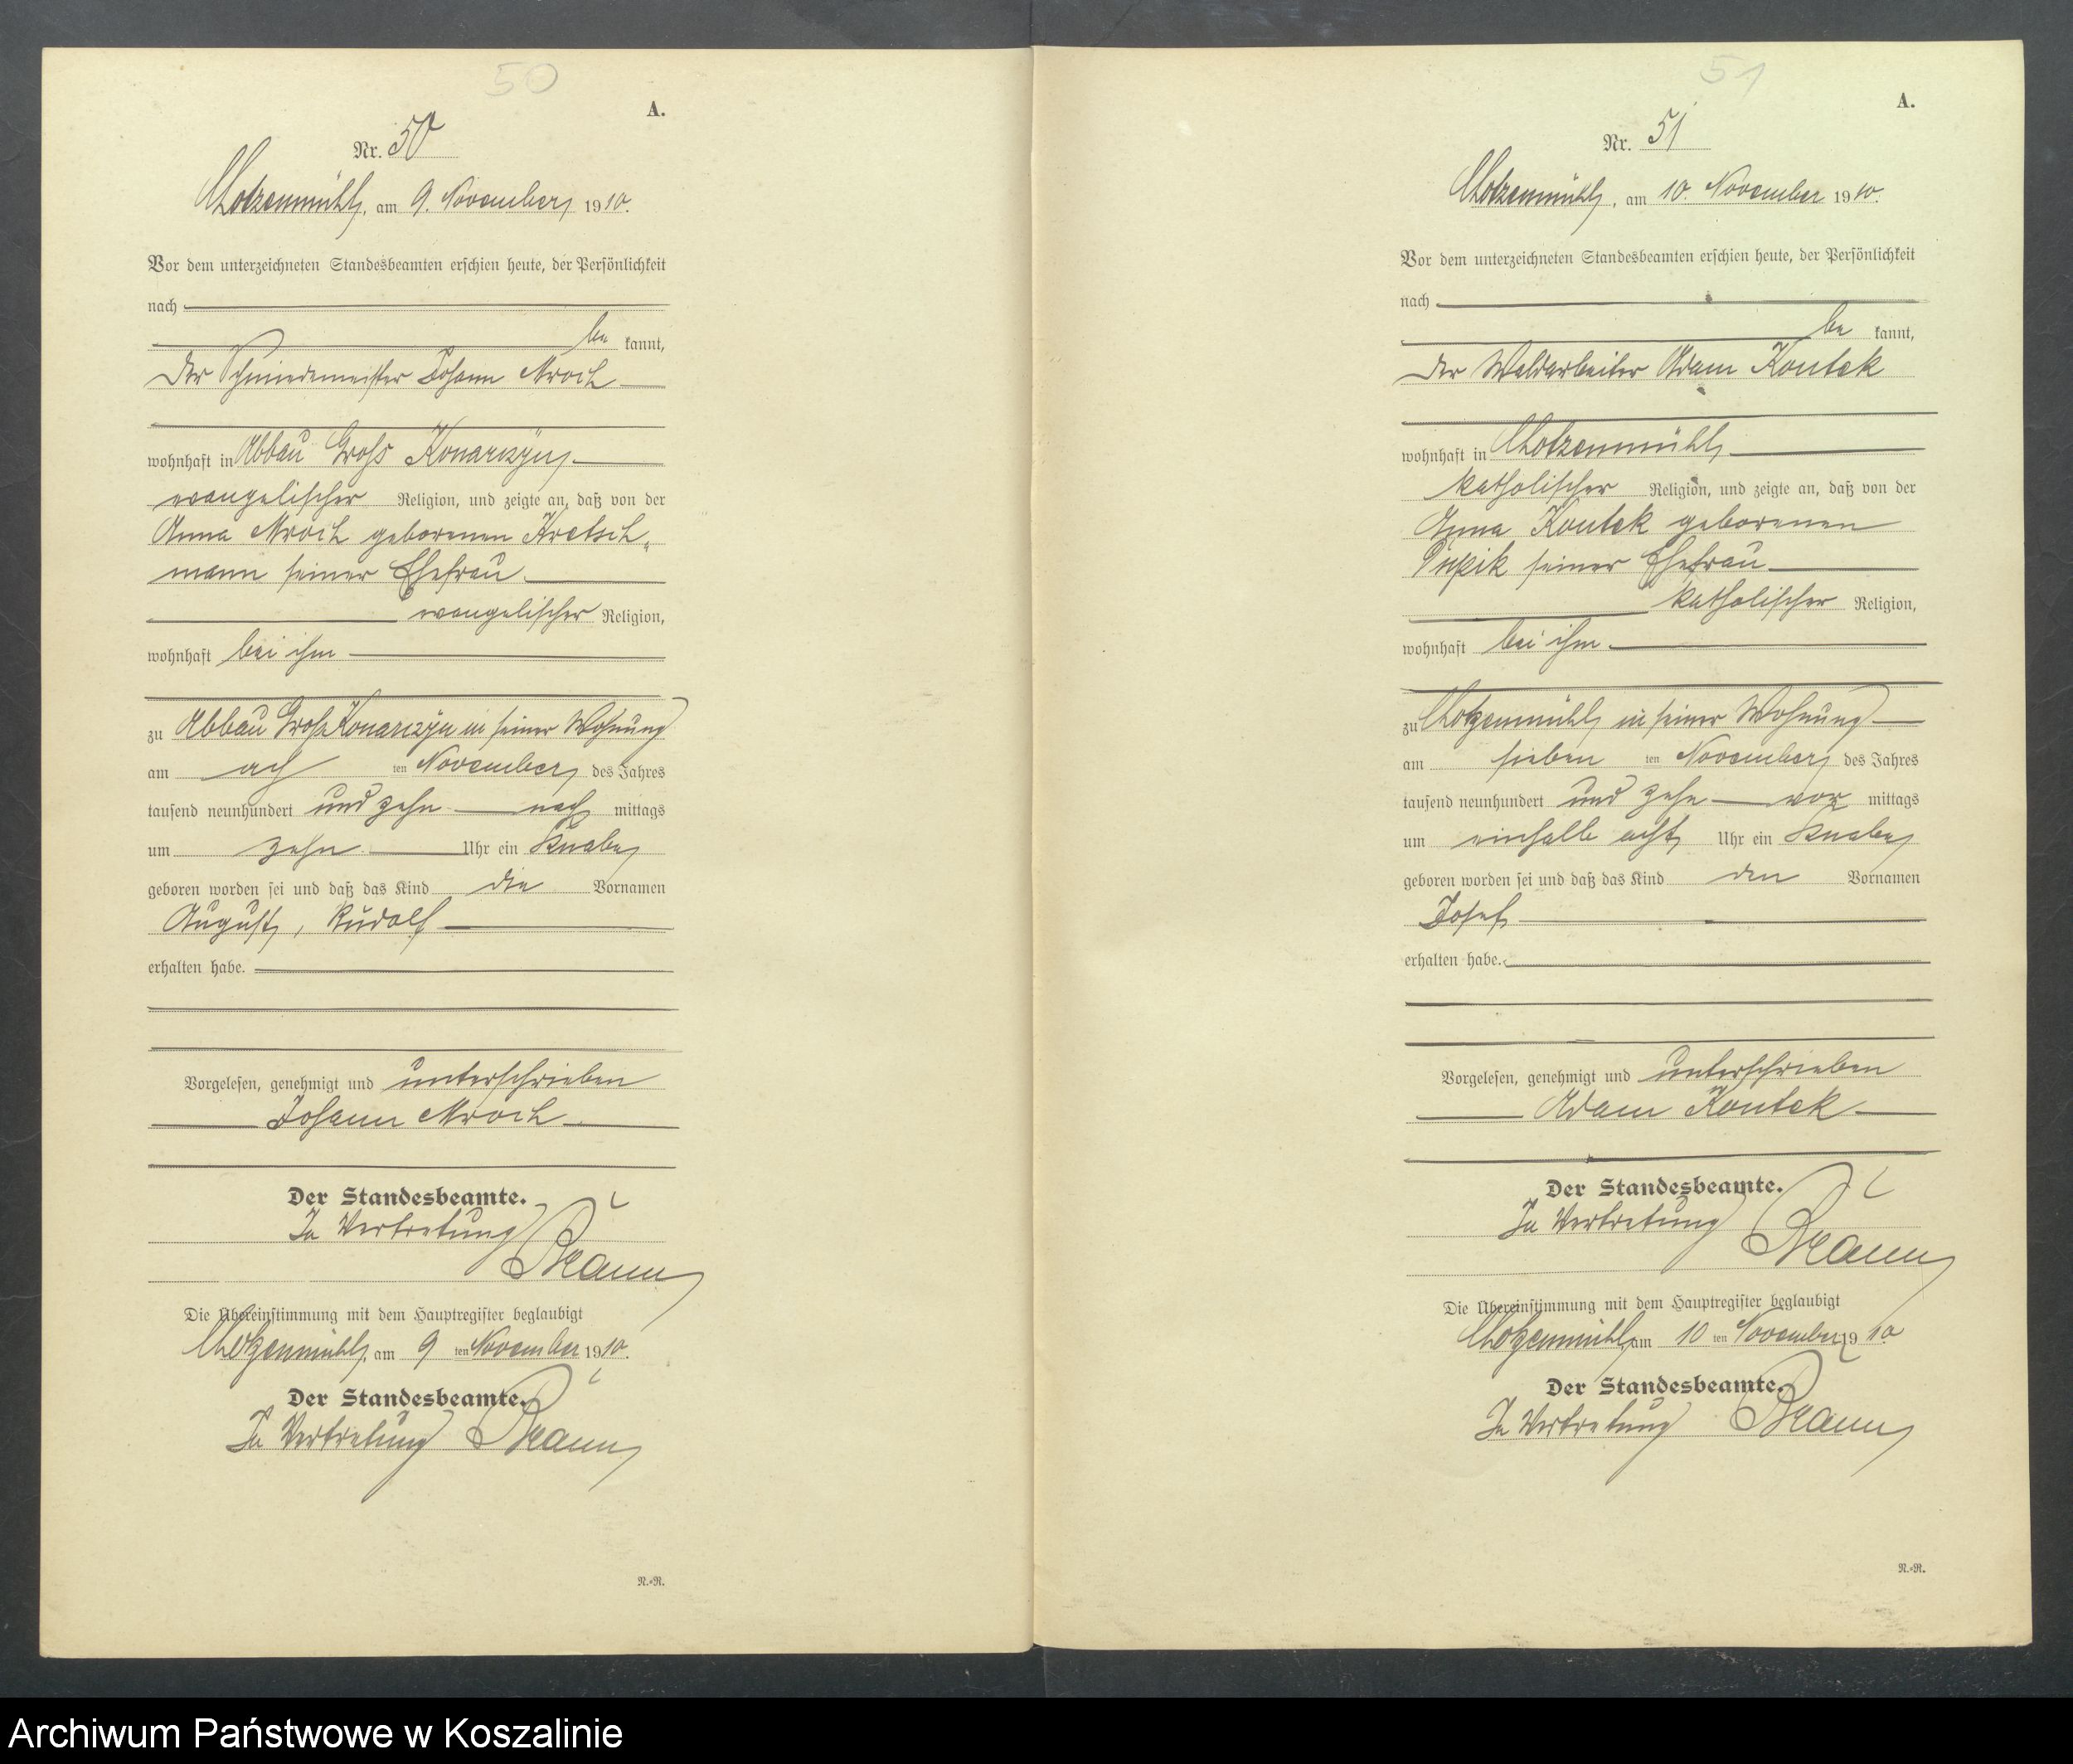 50
A.
Nr. 50
Chotzenmühl, am 9. November 1910.
Vor dem unterzeichneten Standesbeamten erschien heute, der Persönlichkeit
nach
be kannt,
der Schmiedemeister Johann Mroch
wohnhaft in Abbau Gross Konarczyn
evangelischer Religion, und zeigte an, daß von der
Anna Mroch geborenen Kretsch„
mann seiner Ehefrau
evangelischer Religion,
wohnhaft bei ihm
zu Abbau Gross Konarczyn in seiner Wohnung
am ach ten November des Jahres
tausend neunhundert und zehn nach mittags
um zehn Uhr ein Knabe
geboren worden sei und daß das Kind die Vornamen
August, Rudolf
erhalten habe.
Vorgelesen, genehmigt und unterschrieben
Johann Mroch
Der Standesbeamte.
In Vertretung
Die Übereinstimmung mit dem Hauptregister beglaubigt
Chotzenmühl, am 9 ten November 1910.
Der Standesbeamte.
In Vertretung
N.-N.
51
A.
Nr. 51
Chotzenmühl, am 10. November 1910.
Vor dem unterzeichneten Standesbeamten erschien heute, der Persönlichkeit
nach
be kannt,
der Waldarbeiter Adam Kontek
wohnhaft in Chotzenmühl
katholischer Religion, und zeigte an, daß von der
Anna Kontek geborenen
seiner Ehefrau
katholischer Religion,
wohnhaft bei ihm
zu Chotzenmühl in seiner Wohnung
am sieben ten November des Jahres
tausend neunhundert und zehn vor mittags
um einhalb acht Uhr ein Knabe
geboren worden sei und daß das Kind den Vornamen
Josef
erhalten habe.
Vorgelesen, genehmigt und unterschrieben
Adam Kontek
Der Standesbeamte.
In Vertretung
Die Übereinstimmung mit dem Hauptregister beglaubigt
Chotzenmühl, am 10 ten November 1910
Der Standesbeamte.
In Vertretung
N.-N.
Archiwum Państwowe w Koszalinie